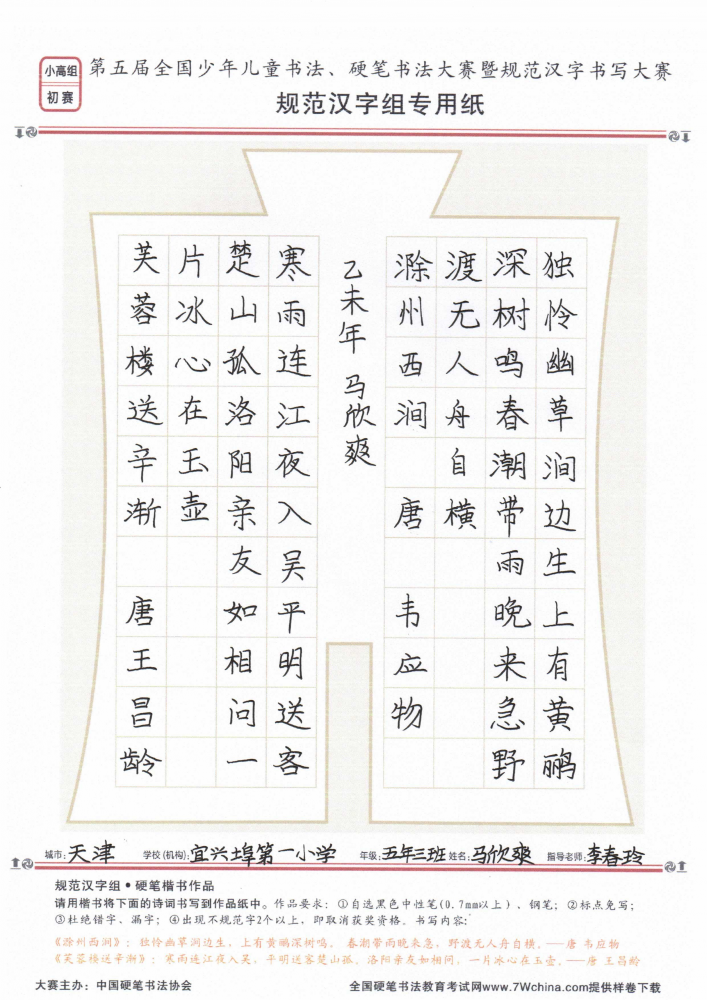 小高组
初赛
第五届全国少年儿童书法、硬笔书法大赛暨规范汉字书写大赛
规范汉字组专用纸
独怜幽草涧边生上有黄鹂
深树鸣春潮带雨晚来急野
渡无人舟自横
滁州西涧 唐 韦应物
乙未年 马欣爽
寒雨连江夜入吴平明送客
楚山孤洛阳亲友如相问一
片冰心在玉壶
芙蓉楼送辛渐 唐王昌龄
城市:天津 学校(机构):宜兴埠第一小学 年级:五年三班 姓名:马欣爽 指导老师:李春玲
规范汉字组•硬笔楷书作品
请用楷书将下面的诗词书写到作品纸中。作品要求:①自选黑色中性笔(0.7mm以上)、钢笔;②标点免写;
③杜绝错字、漏字;④出现不规范字2个以上,即取消获奖资格。书写内容:
《滁州西涧》:独怜幽草涧边生,上有黄鹂深树鸣。春潮带雨晚来急,野渡无人舟自横。——唐 韦应物
《芙蓉楼送辛渐》:寒雨连江夜入吴,平明送客楚山孤。洛阳亲友如相问,一片冰心在玉壶。——唐 王昌龄
大赛主办:中国硬笔书法协会 全国硬笔书法教育考试网www.7Wchina.com提供样卷下载